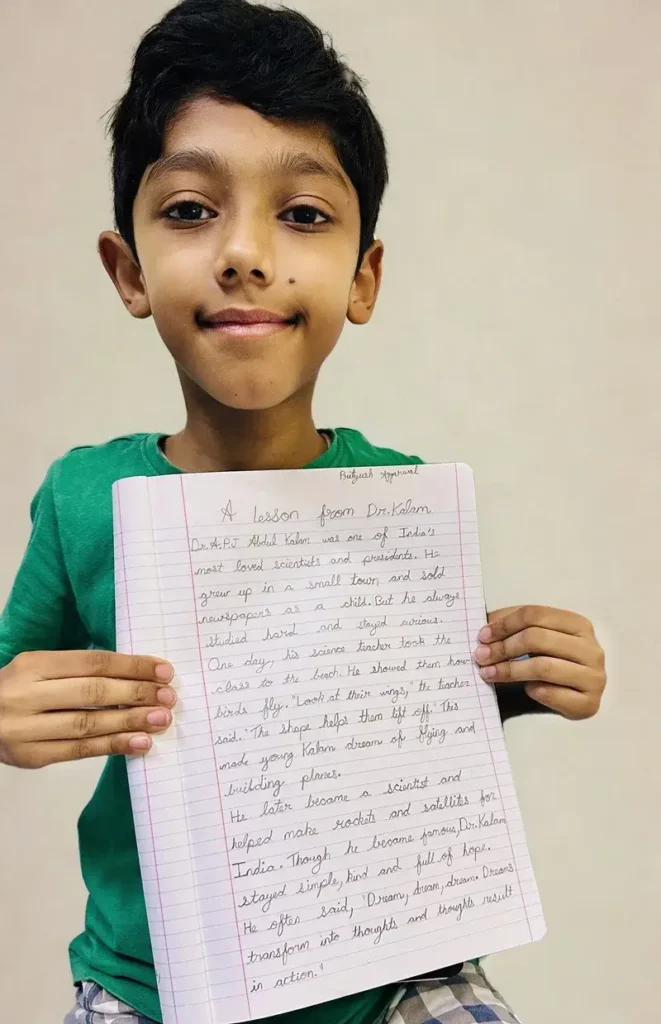 Pratyush Aggarwal
A lesson from Dr. Kalam
Dr. A.P.J Abdul Kalam was one of India's
most loved scientists and presidents. He
grew up in a small town and sold
newspapers as a child. But he always
studied hard and stayed curious.
One day, his science teacher took the
class to the beach. He showed them how
birds fly. "Look at their wings," the teacher
said. "The shape helps them lift off." This
made young Kalam dream of flying and
building planes.
He later became a scientist and
helped make rockets and satellites for
India. Though he became famous, Dr. Kalam
stayed simple, kind and full of hope.
He often said, 'Dream, dream, dream. Dreams
transform into thoughts and thoughts result
in action.'